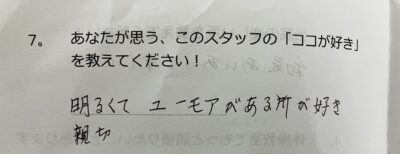 7。 あなたが思う、このスタッフの「ココが好き」
を教えてください！
明るくて ユーモアがある所が好き
親切